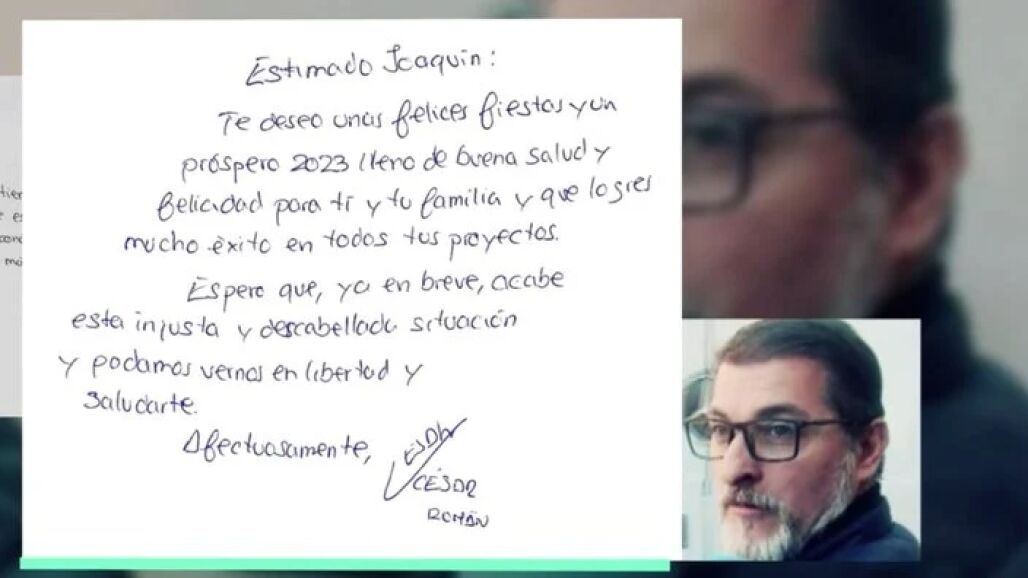 Estimado Joaquín:
Te deseo unas felices fiestas y un
próspero 2023 lleno de buena salud y
felicidad para ti y tu familia y que logres
mucho éxito en todos tus proyectos.
Espero que, ya en breve, acabe
esta injusta y descabellada situación
y podamos vernos en libertad y
saludarte.
Afectuosamente,
CÉSAR
ROMÁN